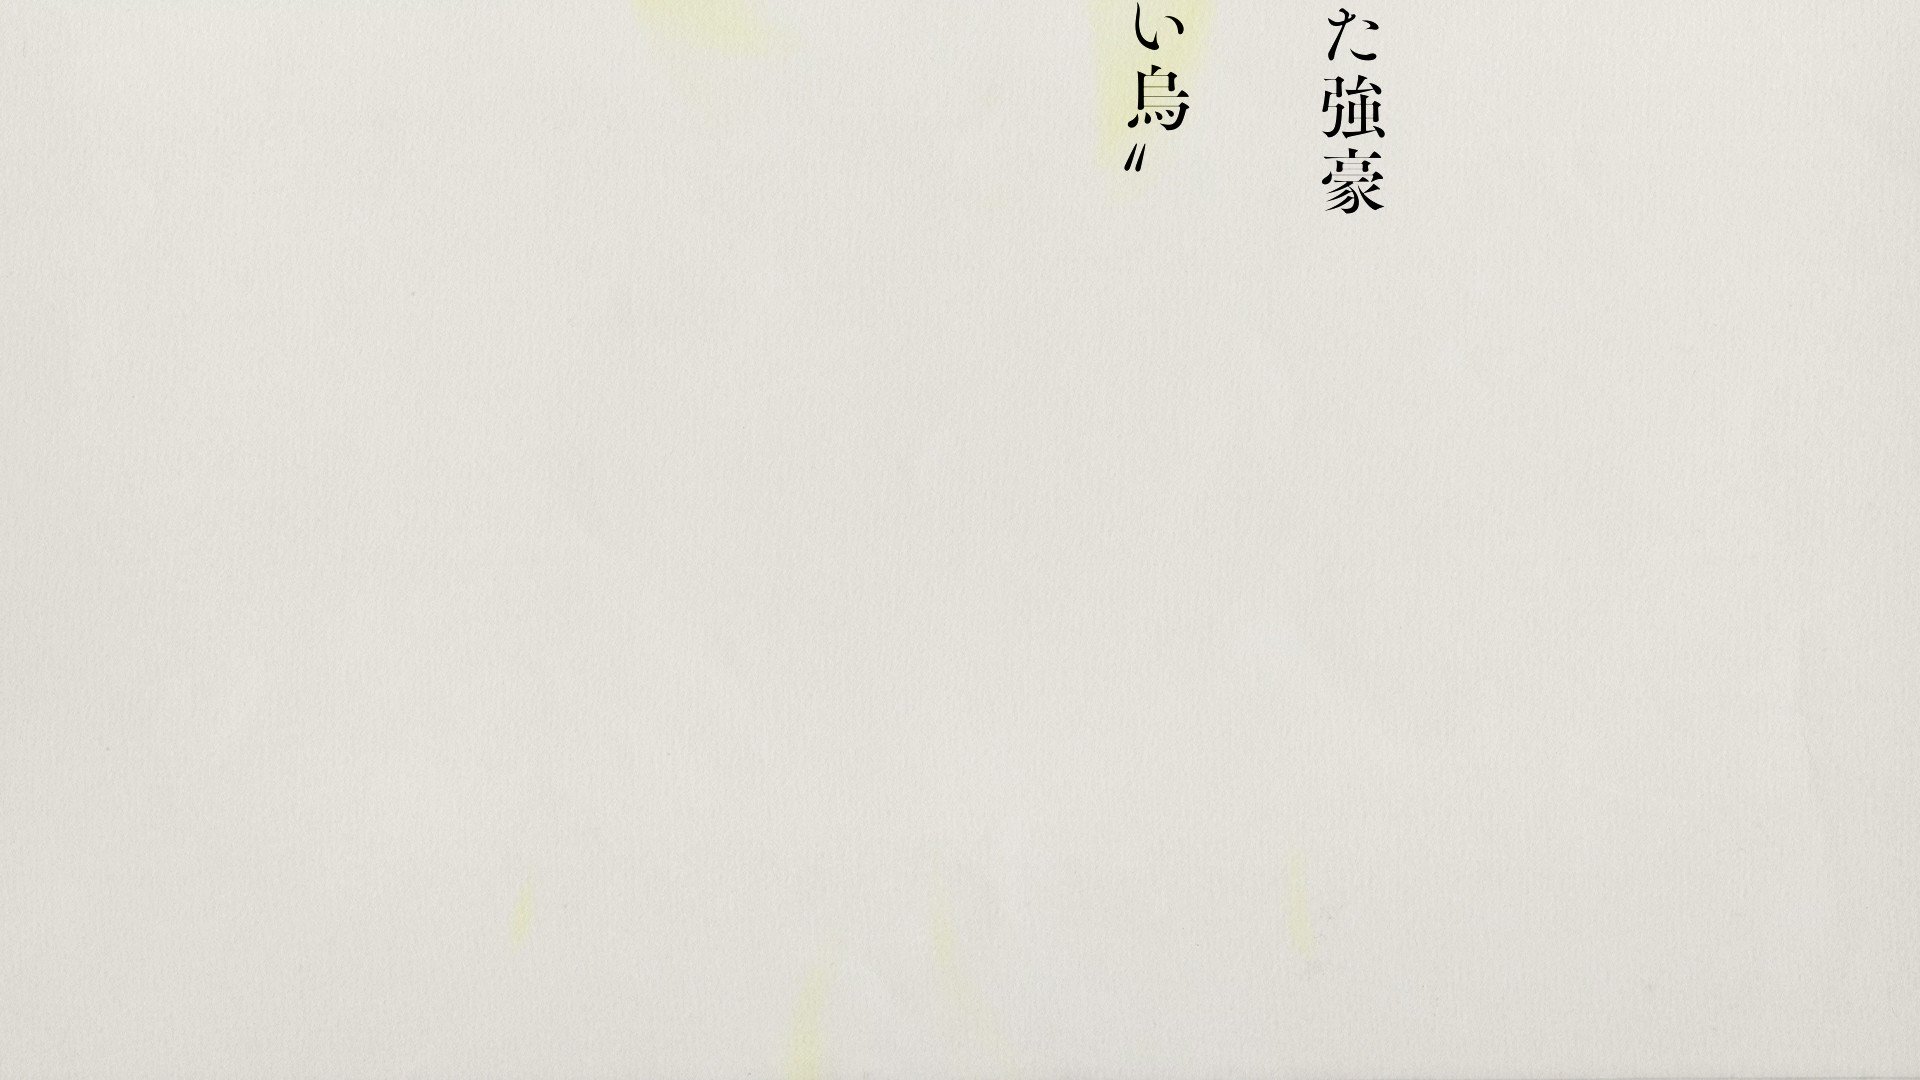 た強豪
い烏〟